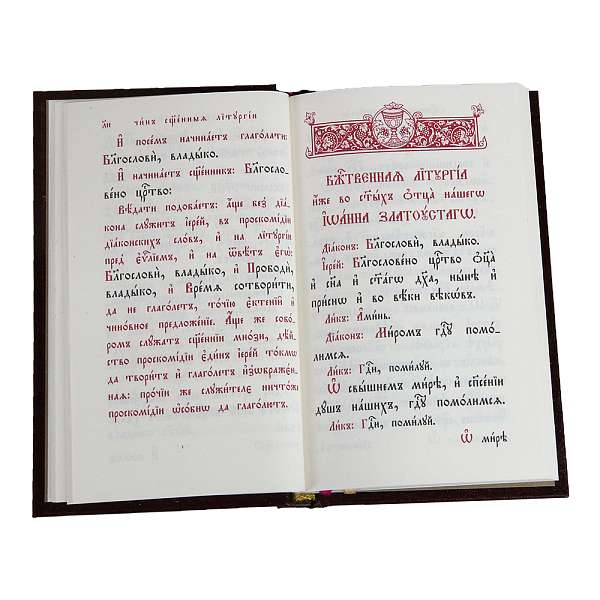 л҃и чи́нъ сщ҃е́нныѧ літꙋргі́и
И҆ посе́мъ начина́етъ глаго́лати:
Бл҃гословѝ, влады́ко.
И҆ начина́етъ сщ҃е́нникъ: Бл҃гослове́но црⷭ҇тво:
Вѣ́дати подоба́етъ: а҆́ще без̾ дїа́кона слꙋ́житъ і҆ере́й, въ проскомі́дїи
дїа́конскихъ сло́въ, и҆ на літꙋргі́и
пред̾ є҆ѵⷢ҇лїемъ, и҆ на ѿвѣ́тъ є҆гѡ̀:
Бл҃гословѝ, влады́ко, и҆ Проводѝ,
влады́ко, и҆ Вре́мѧ сотвори́ти,
да не глаго́летъ, то́чїю є҆ктенїѝ и҆
чино́вное предложе́нїе. А҆́ще же собо́ромъ слꙋ́жатъ сщ҃е́ннїи мно́зи, дѣ́йство проскомі́дїи є҆ди́нъ і҆ере́й то́кмѡ
да твори́тъ и҆ глаго́летъ и҆з̾ѡбраже́ннаѧ: про́чїи же слꙋжи́телє ничто́же
проскомі́дїи ѻ҆со́бнѡ да глаго́лютъ.
Бж҃е́ственнаѧ літꙋргі́а
и҆́же во ст҃ы́хъ ѻ҆тца̀ на́шегѡ
І҆ѡа́нна Златоꙋ́стагѡ.
Дїа́конъ: Бл҃гословѝ, влады́ко.
І҆ере́й: Бл҃гослове́но црⷭ҇тво ѻ҆ц҃а̀
и҆ сн҃а и҆ ст҃а́гѡ дх҃а, ны́нѣ и҆
при́снѡ и҆ во вѣ́ки вѣкѡ́въ.
Ли́къ: А҆ми́нь.
Дїа́конъ: Ми́ромъ гдⷭ҇ꙋ помо́лимсѧ.
Ли́къ: Гдⷭ҇и, поми́лꙋй.
Ѡ҆ свы́шнемъ ми́рѣ, и҆ сп҃се́нїи
дꙋ́шъ на́шихъ, гдⷭ҇ꙋ помо́лимсѧ.
Ли́къ: Гдⷭ҇и, поми́лꙋй.
Ѡ҆ ми́рѣ